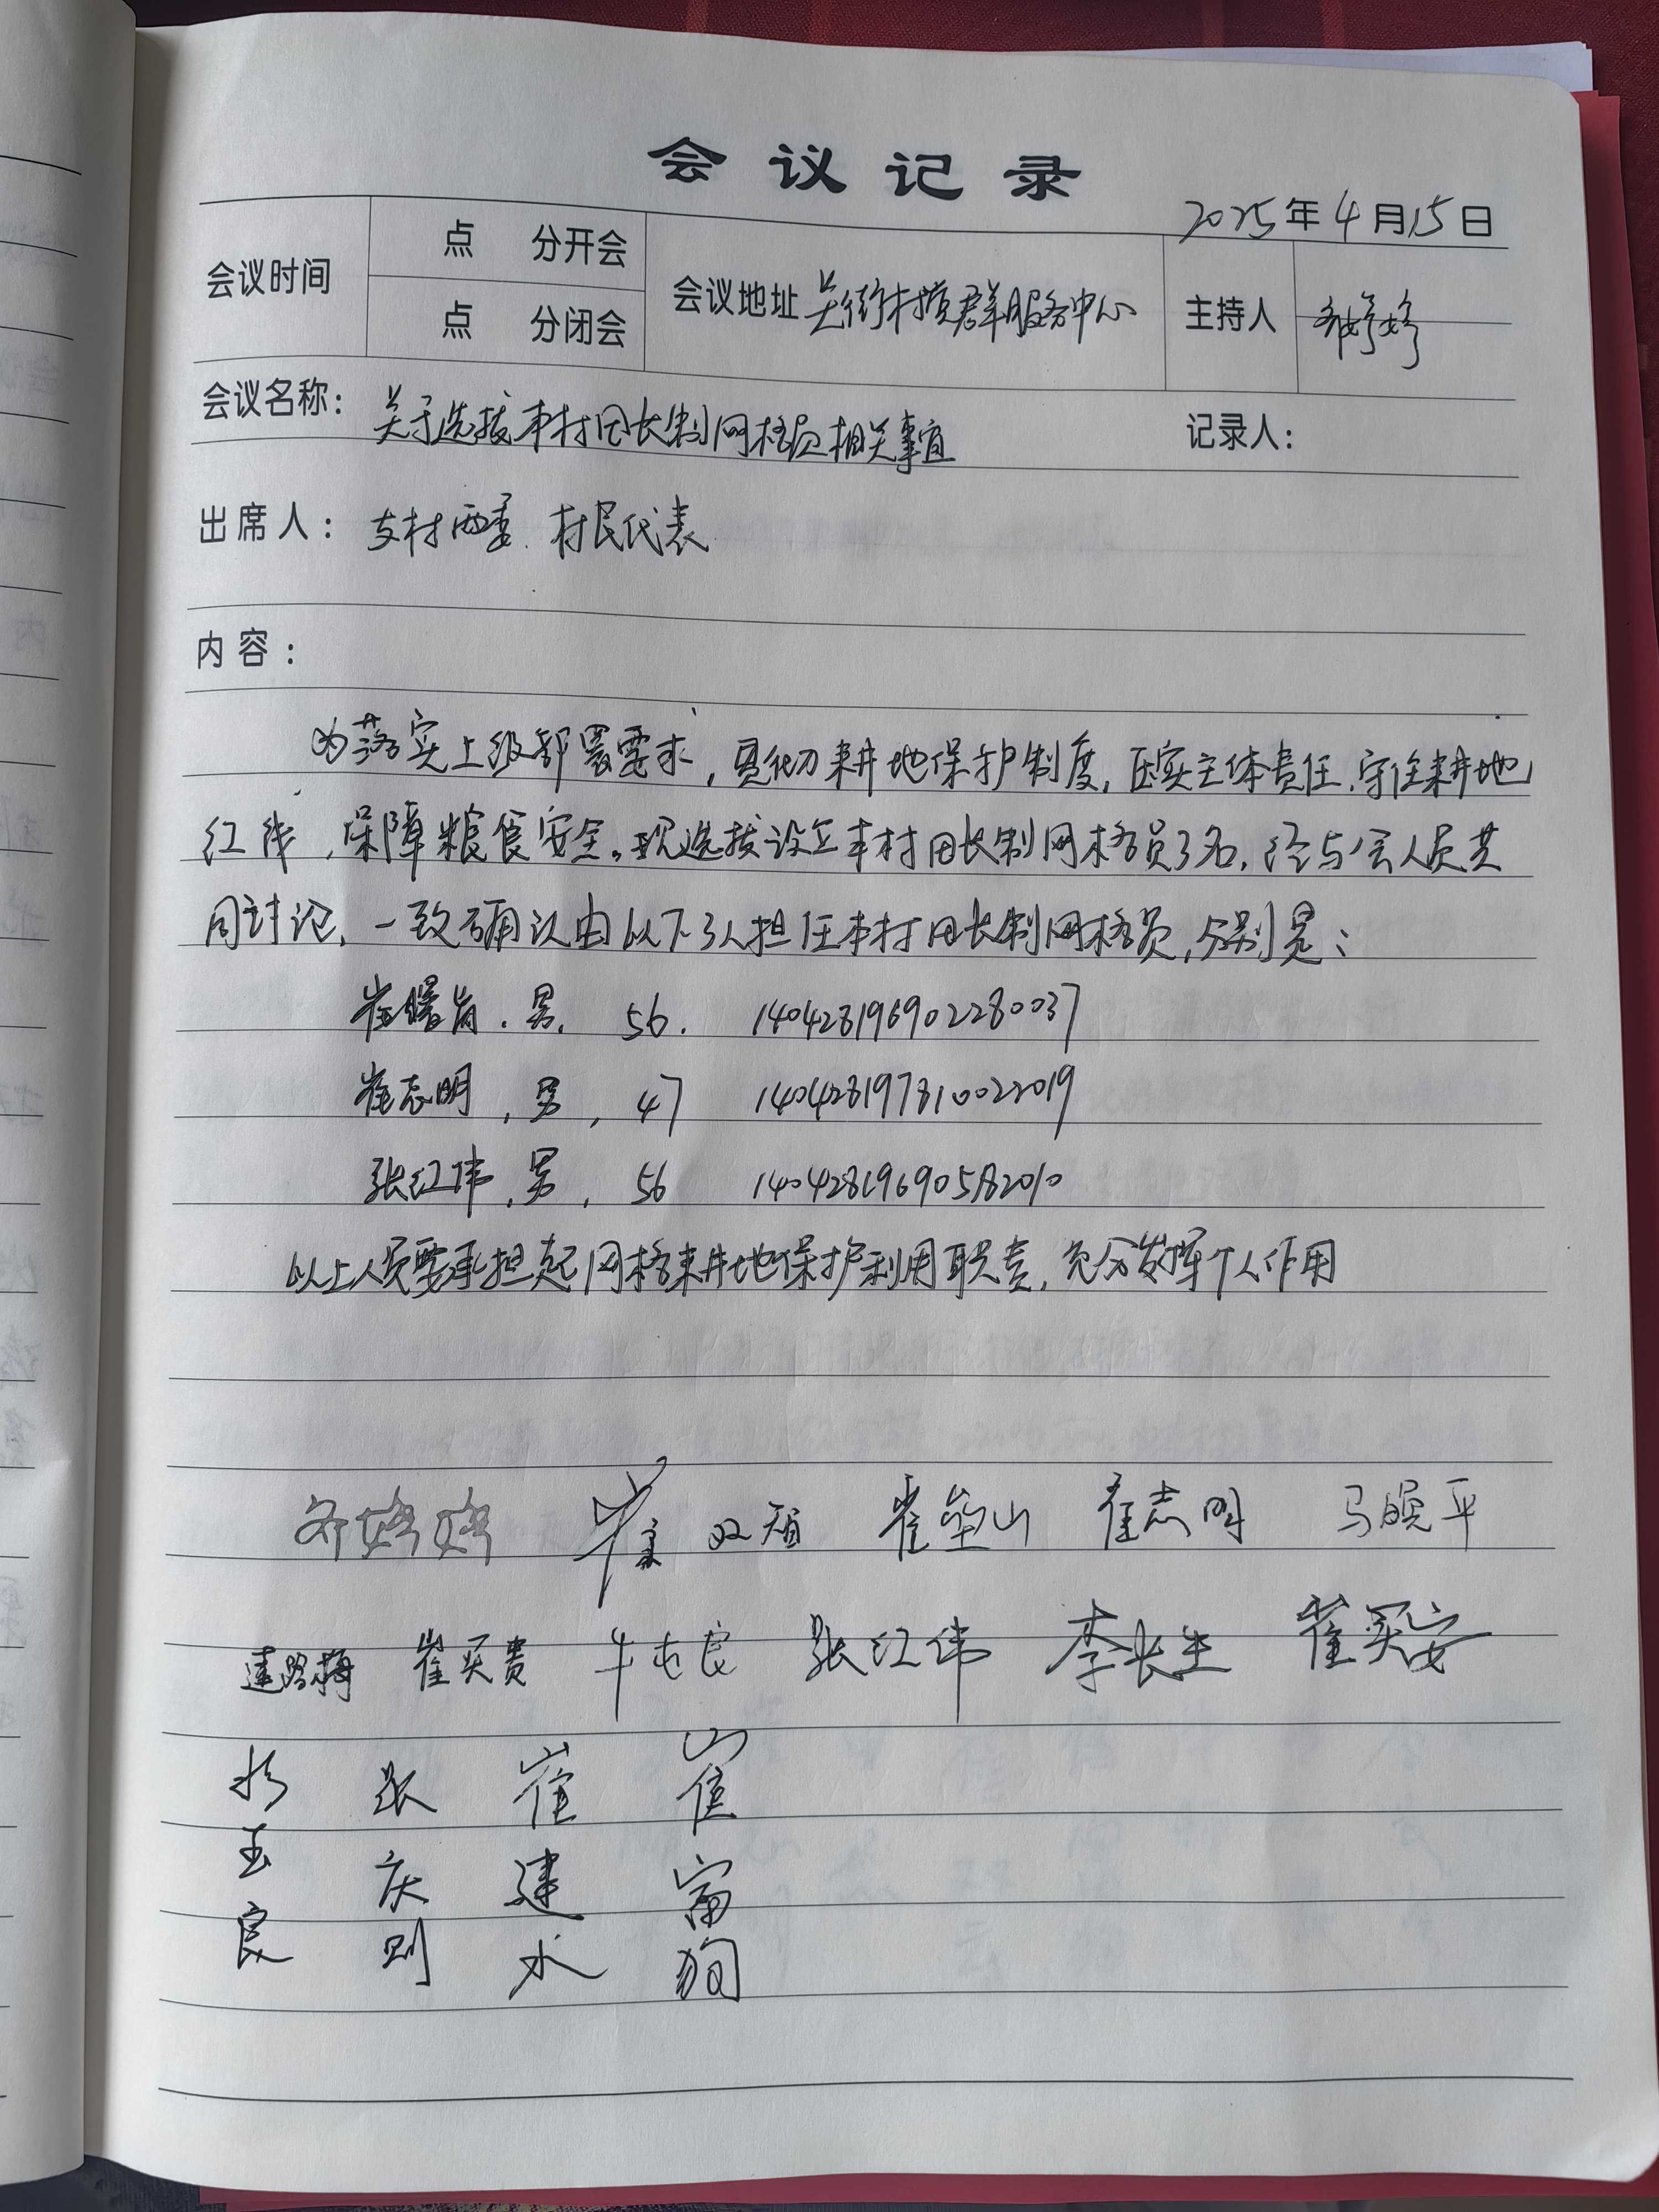 会议记录
2025年4月15日
会议时间 点 分开会
点 分闭会
会议地址 关街村党群服务中心
主持人 婷婷
会议名称: 关于选拔本村田长制网格员相关事宜 记录人:
出席人: 支村两委 村民代表
内容:
为落实上级部署要求,贯彻耕地保护制度,压实主体责任,守住耕地
红线,保障粮食安全。现选拔设立本村田长制网格员3名,经与会人员共
同讨论,一致确认由以下3人担任本村田长制网格员,分别是:
崔曙岗,男, 56, 140428196902280037
崔志明,男, 47 140428197810022019
张红伟,男, 56 140428196905182010
以上人员要承担起网格耕地保护利用职责,充分发挥个人作用
婷婷 崔双 崔 山 崔志明 马晓平
梅 崔买贵 牛屯良 张红伟 李长生 崔买安
玉良 张庆则 崔建水 崔富狗